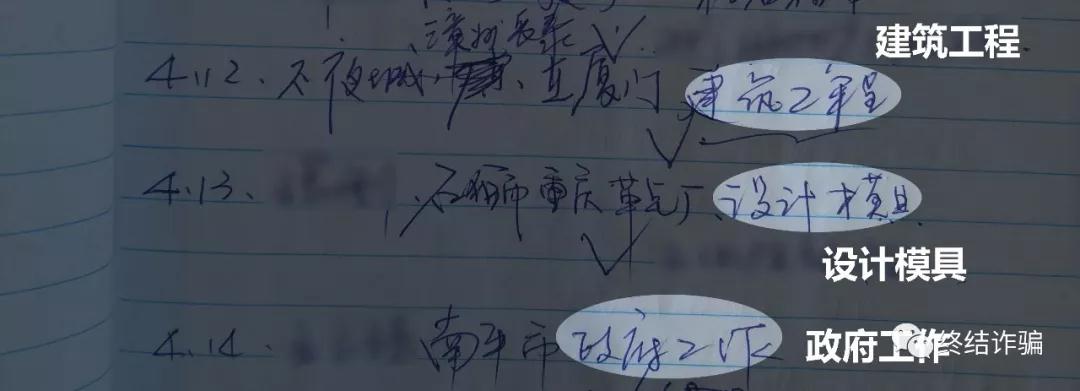 漳州长泰
建筑工程
4.12、不夜城，、在厦门建筑工程
4.13、石狮市重庆、设计模具
设计模具
4.14、南平市政府工作
政府工作
终结诈骗